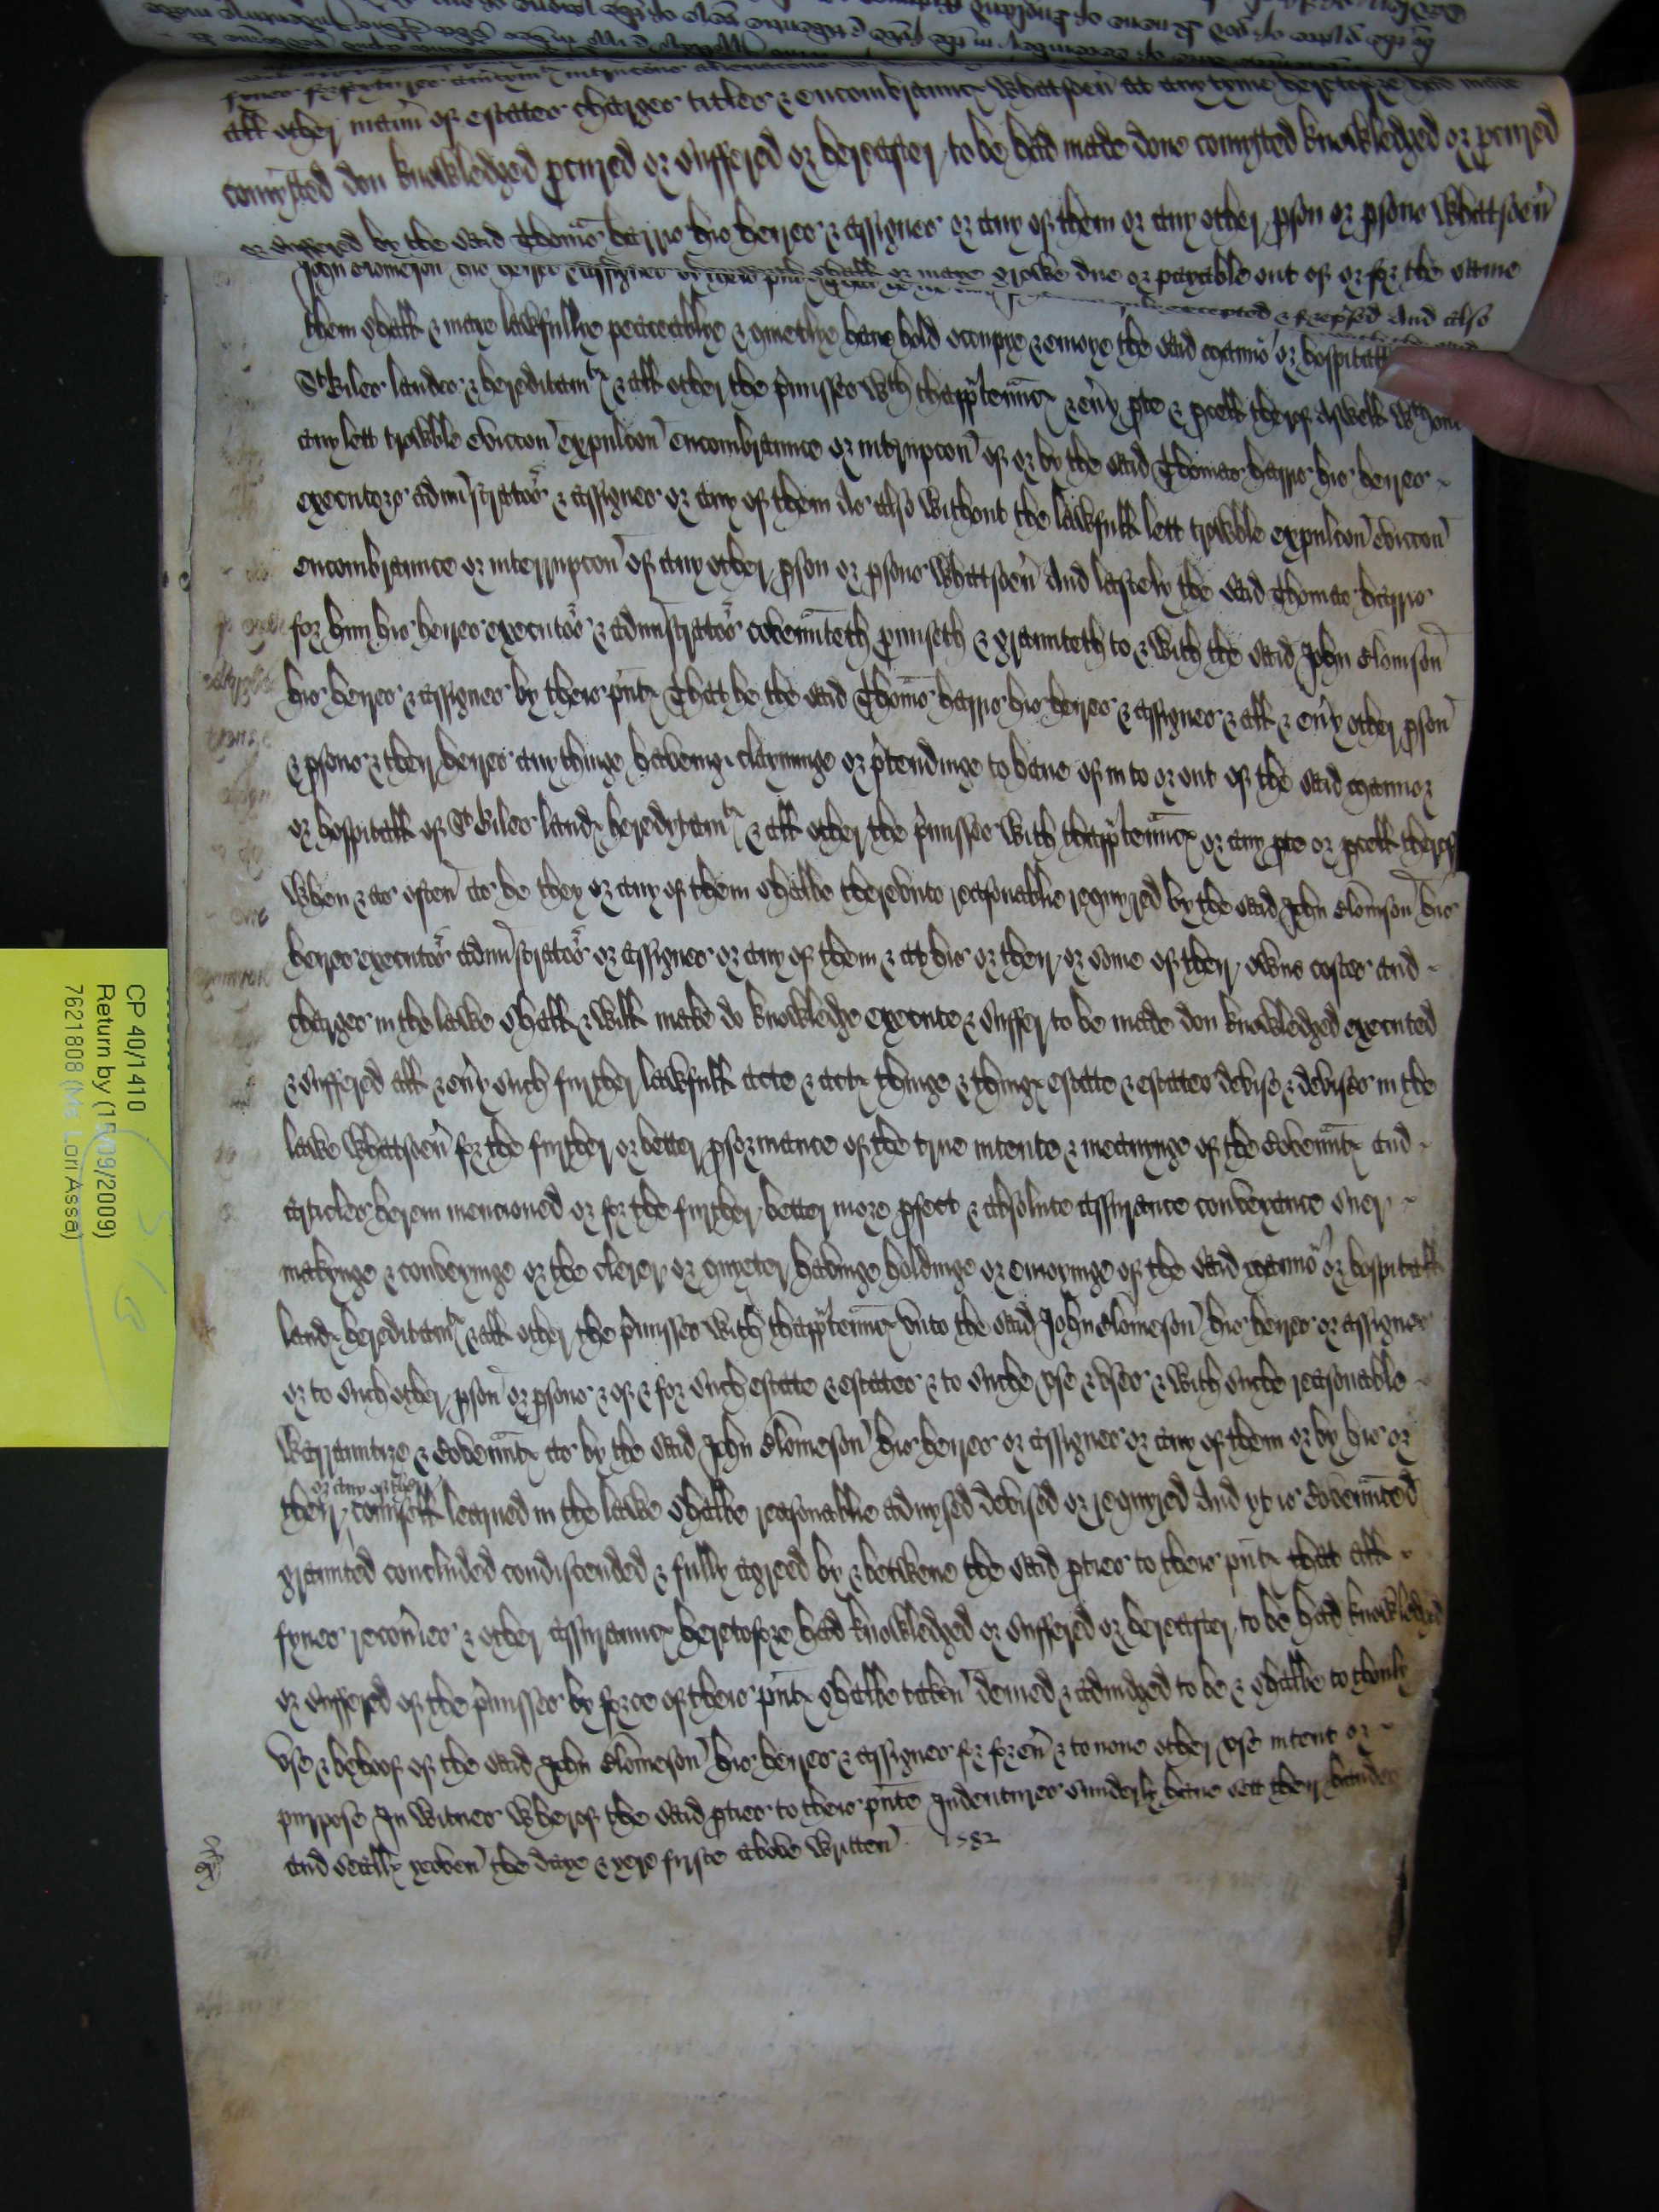 all other mann' of estates charges titles & encombrannc whatsoeu' at any tyme heretofore had made
comytted don knowledged pcured or suffered or hereafter to be had made done comytted knowledged or pcured
or suffered by the said Thomas harris his heires & assignes or any of them or any other pson or psons whatsoeu'
John Slomeson his heires & assignes shall or maye growe due or payable out of or for the same
excepted & forprised And also
them shall & maye lawfullye peaceablye & quietlye have hold occupye & enioye the said mannor or hospitall
St Giles landes & hereditamts & all other the p'misses wth thapp'tennc & eu'y pte & pcell therof aswell wthout
any lett trowble eviccon expulcon encombrannce or interrupcon of or by the said Thomas harris his heires
executors administrators & assignes or any of them As also without the lawfull lett trowble expulcon eviccon
encombrannce or interrupcon of any other pson or psons whatsoeu' And lastely the said Thomas harris
for him his heires executors & administrators covennteth pmiseth & grannteth to & with the said John Slomson
his heires & assignes by theis pntc That he the said Thomas harris his heires & assignes & all & eu'y other pson
& psons & their heires any thinge havenge clayminge or p'tendinge to have of in to or out of the said mannor
or hospitall of St Giles landc heredytamtc & all other the p'misses with thapp'tennc or any pte or pcell therof
when & as often as he they or any of them shalbe therevnto reasonablie requyred by the said John Slomson his
heires executors administrators or assignes or any of them & at his or their or some of their owne costes and
charges in the lawe shall & will make do knowledge execute & suffer to be made don knowledged executed
& suffered all & eu'y such further lawfull acte & actc thinge & thingc estate & estates devise & devises in the
lawe whatsoeu' for the further or better pformance of the true intente & meanynge of the Covenntc and
articles herein mencioned or for the further better more pfect & absolute assurance conveyance suer
makynge & conveyinge or the clerer or quyeter havinge holdinge or enioyinge of the said mannor or hospitall
landc hereditamtc & all other the p'misses with thapp'tennc vnto the said John Slomeson his heires or assignes
or to such other pson or psons & of & for such estate & estates & to suche vse & vses & with suche reasonable
warrantize & Covenntc as by the said John Slomeson his heires or assignes or any of them or by his or
or any of their
their counsell learned in the lawe shalbe reasonablie advysed devised or requyred And yt is Covennted
grannted concluded condiscended & fully agreed by & betwene the said pties to theis pntc that all
fynes recou'ies & other assurannc heretofore had knowledged or suffered or hereafter to be had knowledged
or suffered of the p'misses by force of theis pntc shalbe taken demed & adiudged to be & shalbe to thonly
vse & behoof of the said John Slomeson his heires & assignes for foreu' & to none other vse intent or
purpose In witnes wherof the said pties to theis pnte Indentures sunderly have sett their handes
and seallc yeoven the daye & yere firste above written 1582
exr
CP 40/1410
Return by (15/09/2009)
7621808 (Ms Lori Assa)